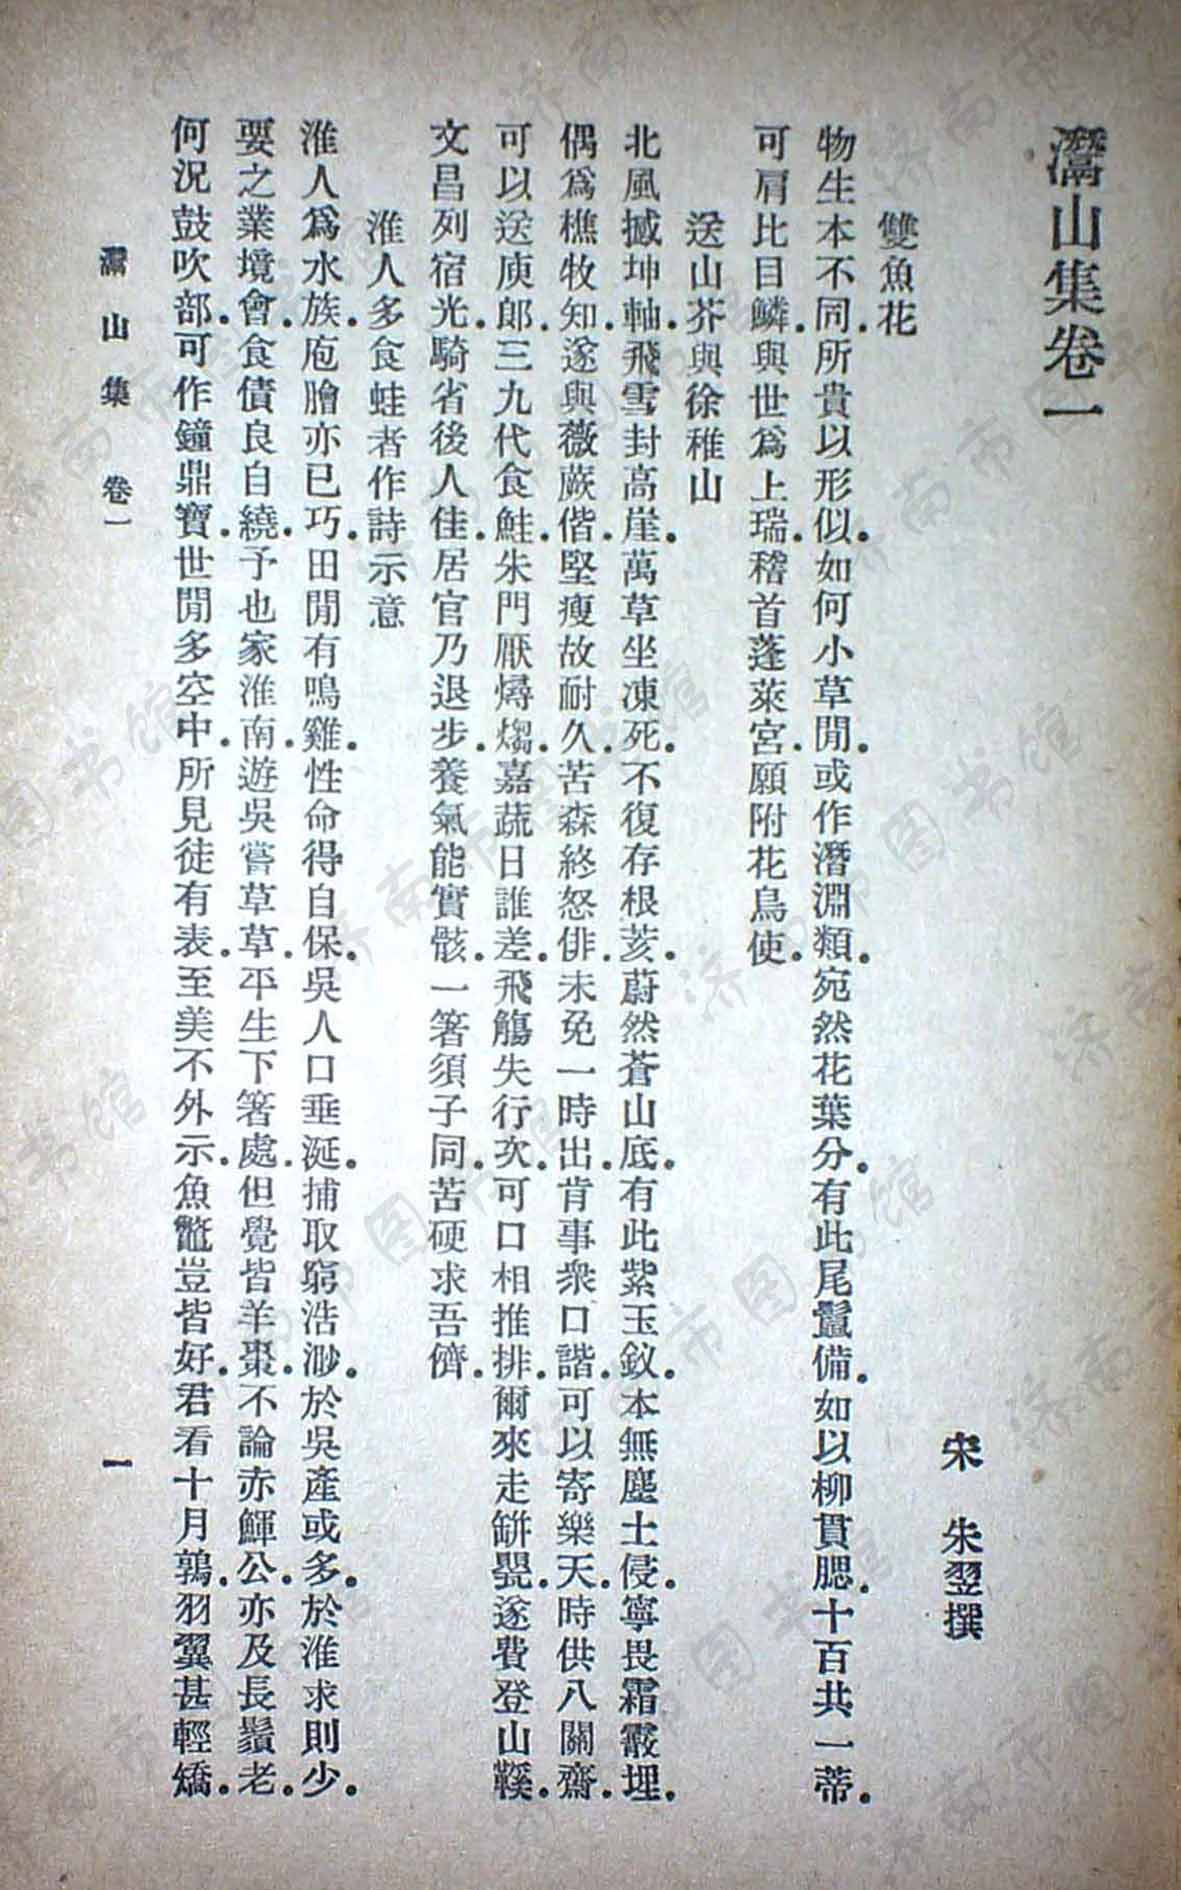 灊山集卷一
宋　朱翌撰
雙魚花
物生本不同.所貴以形似.如何小草閒.或作潛淵類.宛然花葉分.有此尾鬣備.如以柳貫腮.十百共一蒂.
可肩比目鱗.與世爲上瑞.稽首蓬萊宮.願附花鳥使.
送山芥與徐稚山
北風撼坤軸.飛雪封高崖.萬草坐凍死.不復存根荄.蔚然蒼山底.有此紫玉釵.本無塵土侵.寧畏霜霰埋.
偶爲樵牧知.遂與薇蕨偕.堅瘦故耐久.苦森終怒俳.未免一時出.肯事衆口諧.可以寄樂天.時供八關齋.
可以送庾郎.三九代食鮭.朱門厭燖㷅.嘉蔬日誰差.飛觴失行次.可口相推排.爾來走缾罌.遂費登山鞵.
文昌列宿光.騎省後人佳.居官乃退步.養氣能實骸.一箸須子同.苦硬求吾儕.
淮人多食蛙者作詩示意
淮人爲水族.庖膾亦已巧.田閒有鳴雞.性命得自保.吳人口垂涎.捕取窮浩渺.於吳產或多.於淮求則少.
要之業境會.食債良自繞.予也家淮南.遊吳嘗草草.平生下箸處.但覺皆羊棗.不論赤鯶公.亦及長鬚老.
何況鼓吹部.可作鐘鼎寶.世閒多空中.所見徒有表.至美不外示.魚鼈豈皆好.君看十月鶉.羽翼甚輕矯.
灊山集　卷一
一
济南市图书馆